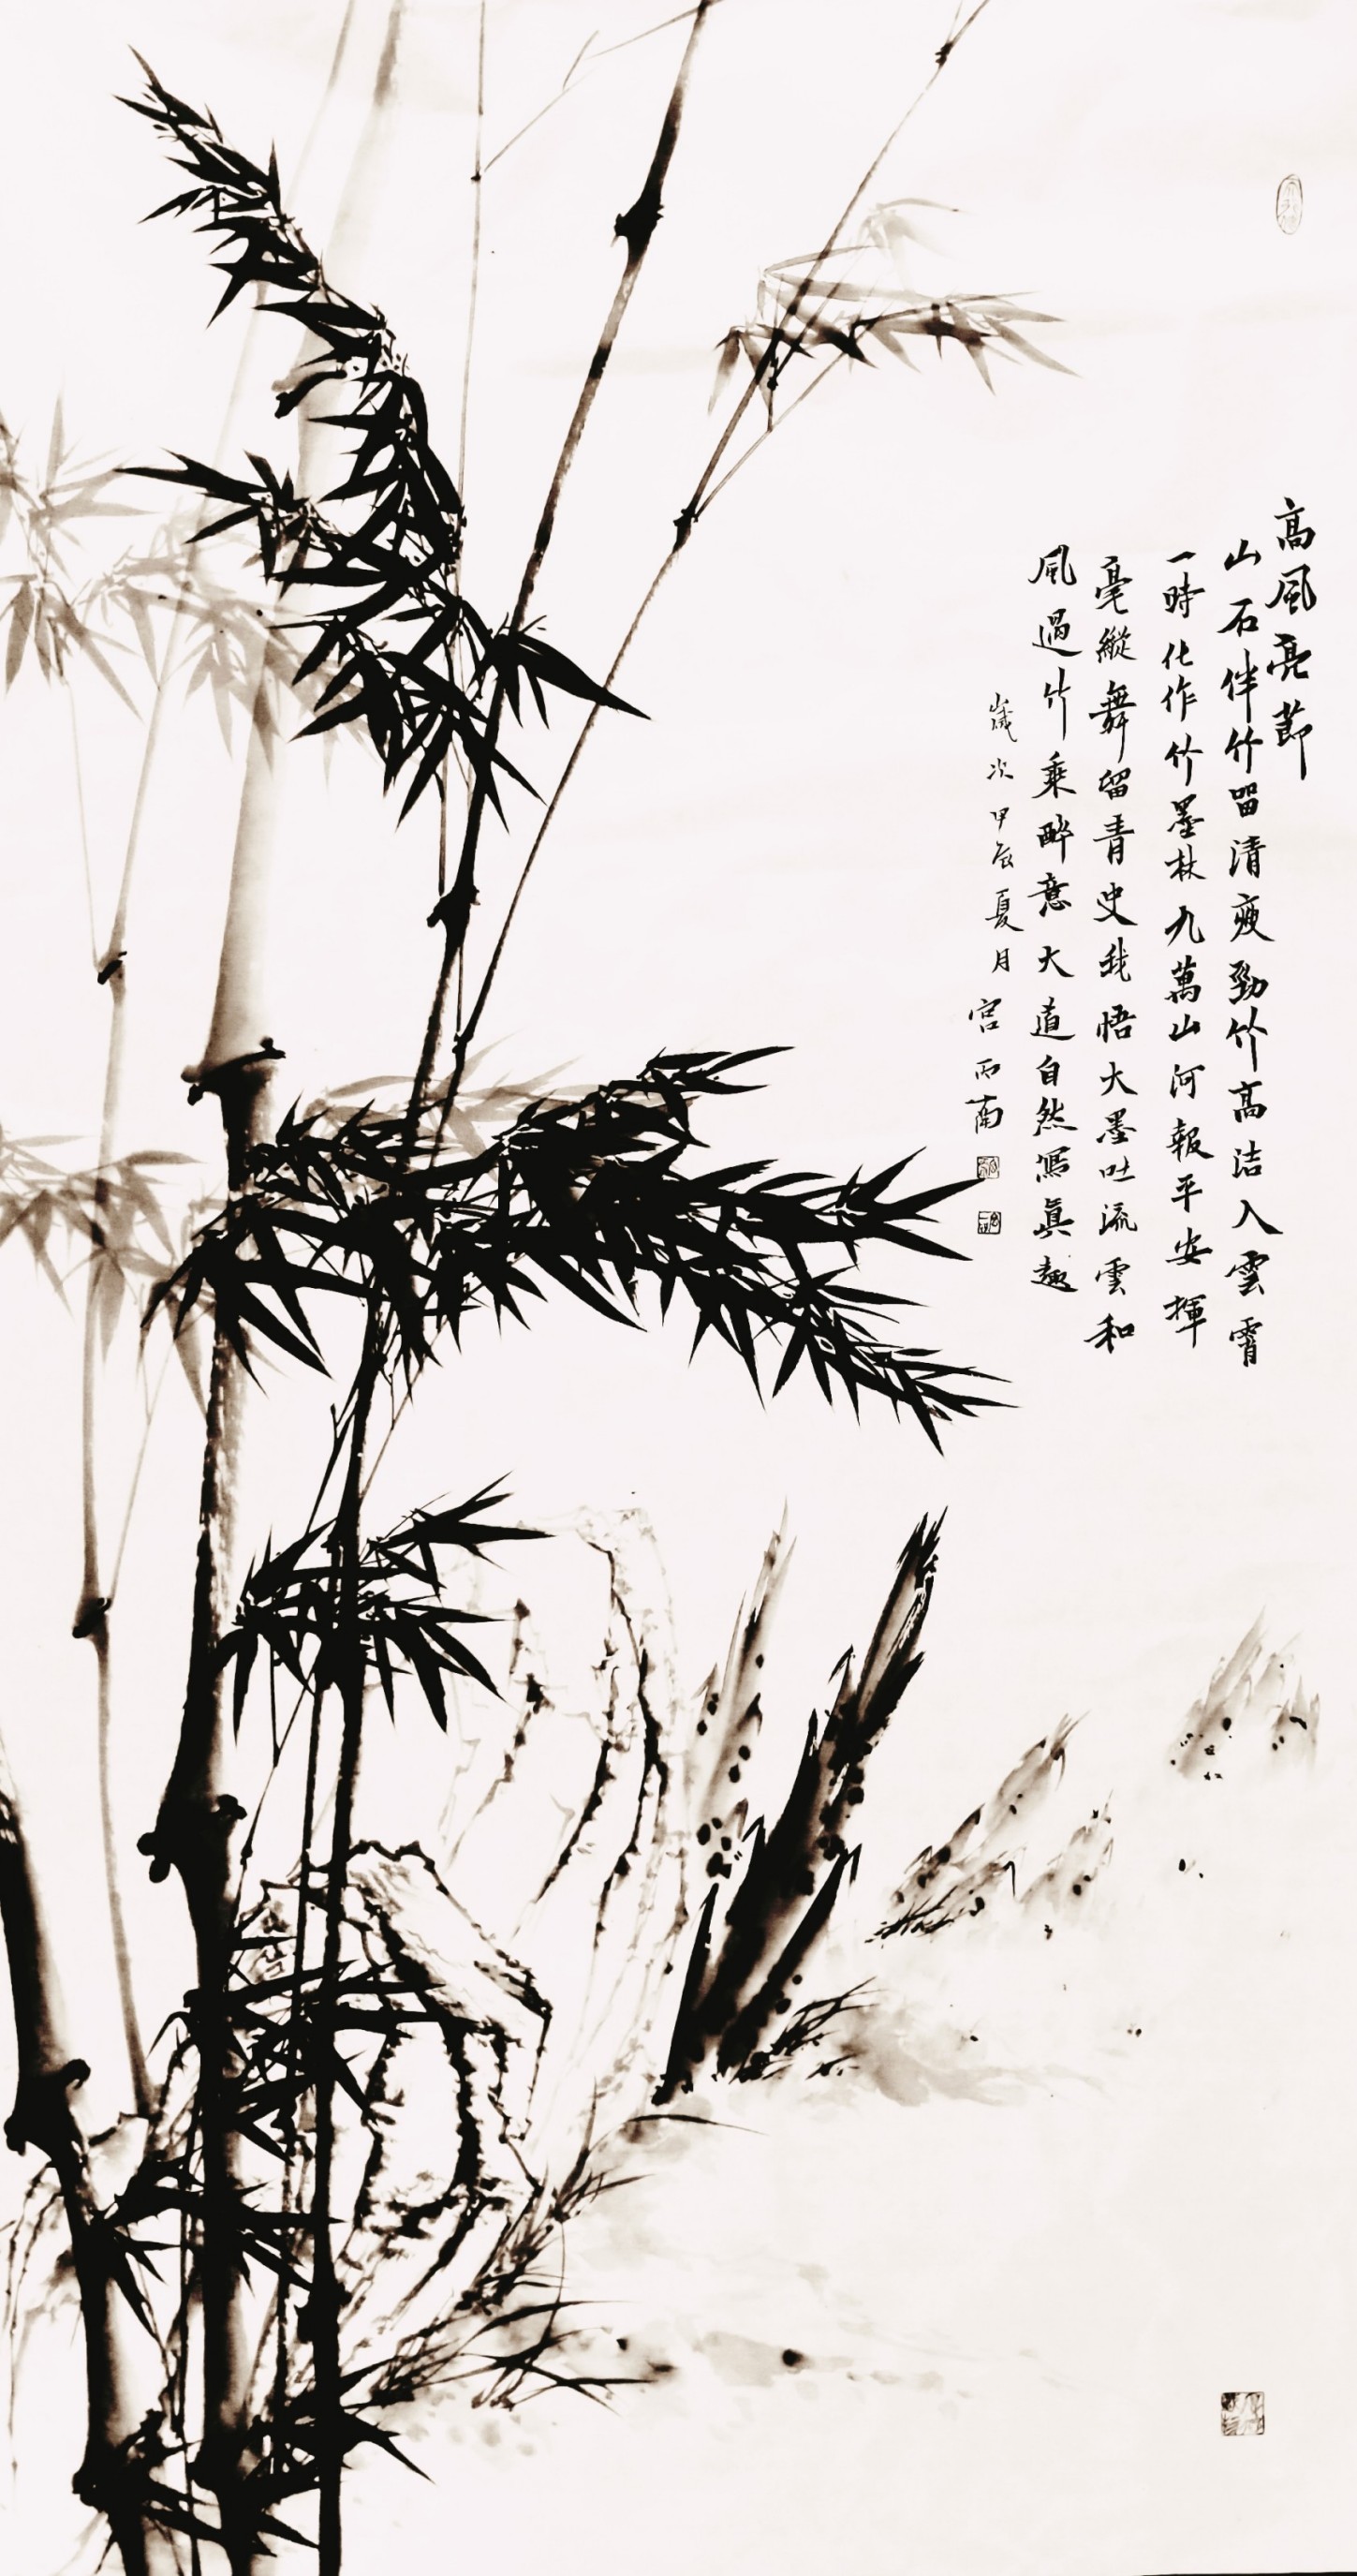 高風亮節
山石伴竹留清瘦勁竹高洁入雲霄
一時化作竹墨林九萬山河報平安揮
毫縱舞留青史我悟大墨吐流雲和
風過竹乘醉意大道自然寫真趣
歲次甲辰夏月宫丙南